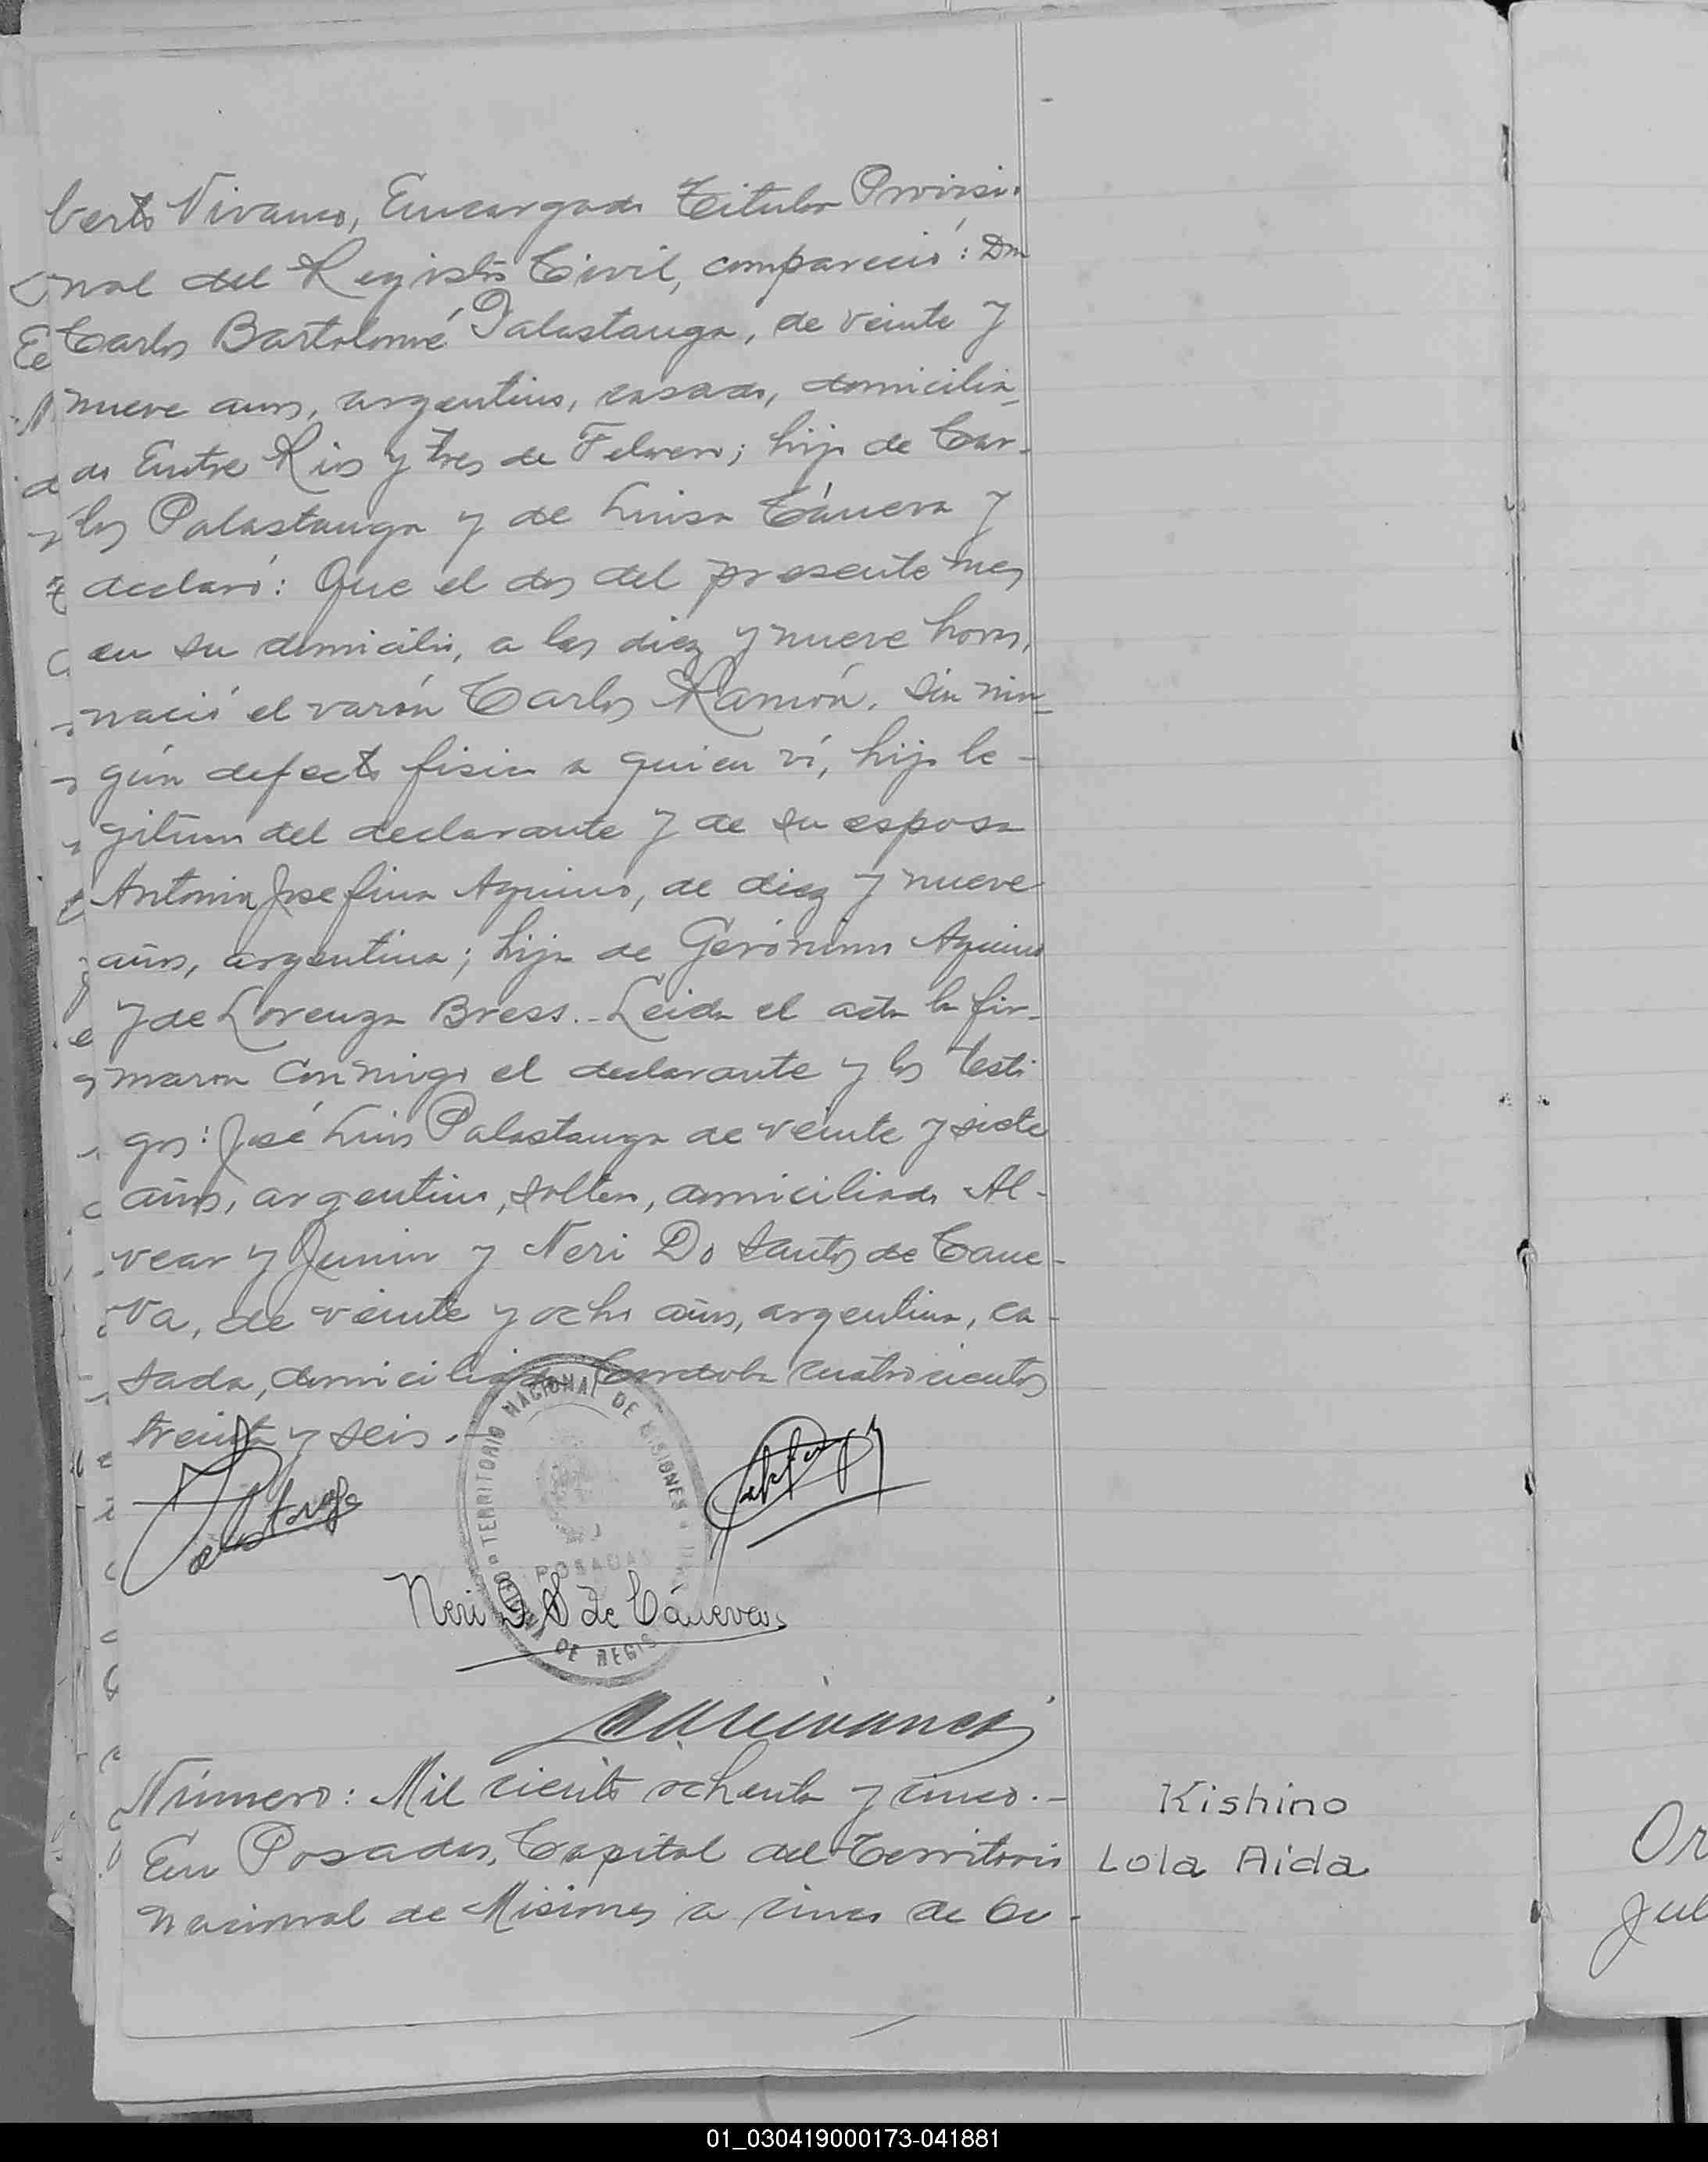 berto Vivanco, Encargado Titular Provisi-
onal del Registro Civil, compareció: Don
Carlos Bartolomé Palastanga, de veinte y
nueve años, argentino, casado, domicilia-
do Entre Rios y tres de Febrero; hijo de Car-
los Palastanga y de Luisa Cáneva y
declaró: Que el dos del presente mes
en su domicilio, a las diez y nueve horas,
nació el varón Carlos Ramón, sin nin-
gún defecto fisico a quien ví, hijo le-
gitimo del declarante y de su esposa
Antonia Josefina Aquino, de diez y nueve
años, argentina; hija de Gerónimo Aquino
y de Lorenza Bress.- Leida el acta la fir-
maron conmigo el declarante y los testi
gos: José Luis Palastanga de veinte y siete
años, argentino, soltero, domiciliado Al-
vear y Junin y Neri Do Santos de Cane-
va, de veinte y ocho años, argentina, ca-
sada, domiciliada Cordoba cuatrocientos
treinta y seis.-
TERRITORIO NACIONAL DE MISIONES
POSADAS
Neri D. S de Cáneva
DE REGIS
Número: Mil ciento ochenta y cinco.-
En Posadas, Capital del Territorio
nacional de Misiones a cinco de Oc-
Kishino
Lola Aida
Or
Jul
01_030419000173-041881